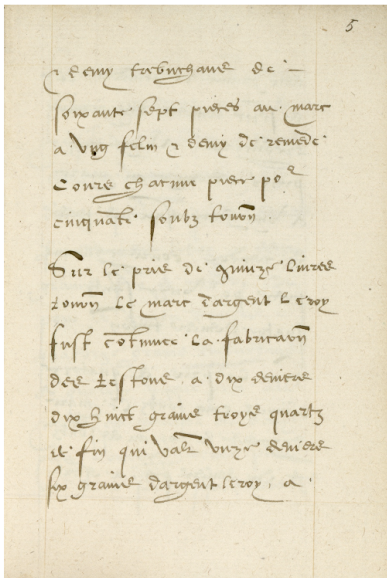 5
& demy trebuchans de
soixante sept pieces au marc
a ung felin & demy de remede
Cours chacune piece por
cinquate soubz tourn
Sur le prix de quinze livres
tourn le marc dargent le roy
fust cotinuee la fabricaon
des Testons a dix deniers
dix huict grains troys quartz
de fin qui vall unze deniers
six grains dargent le roy, a